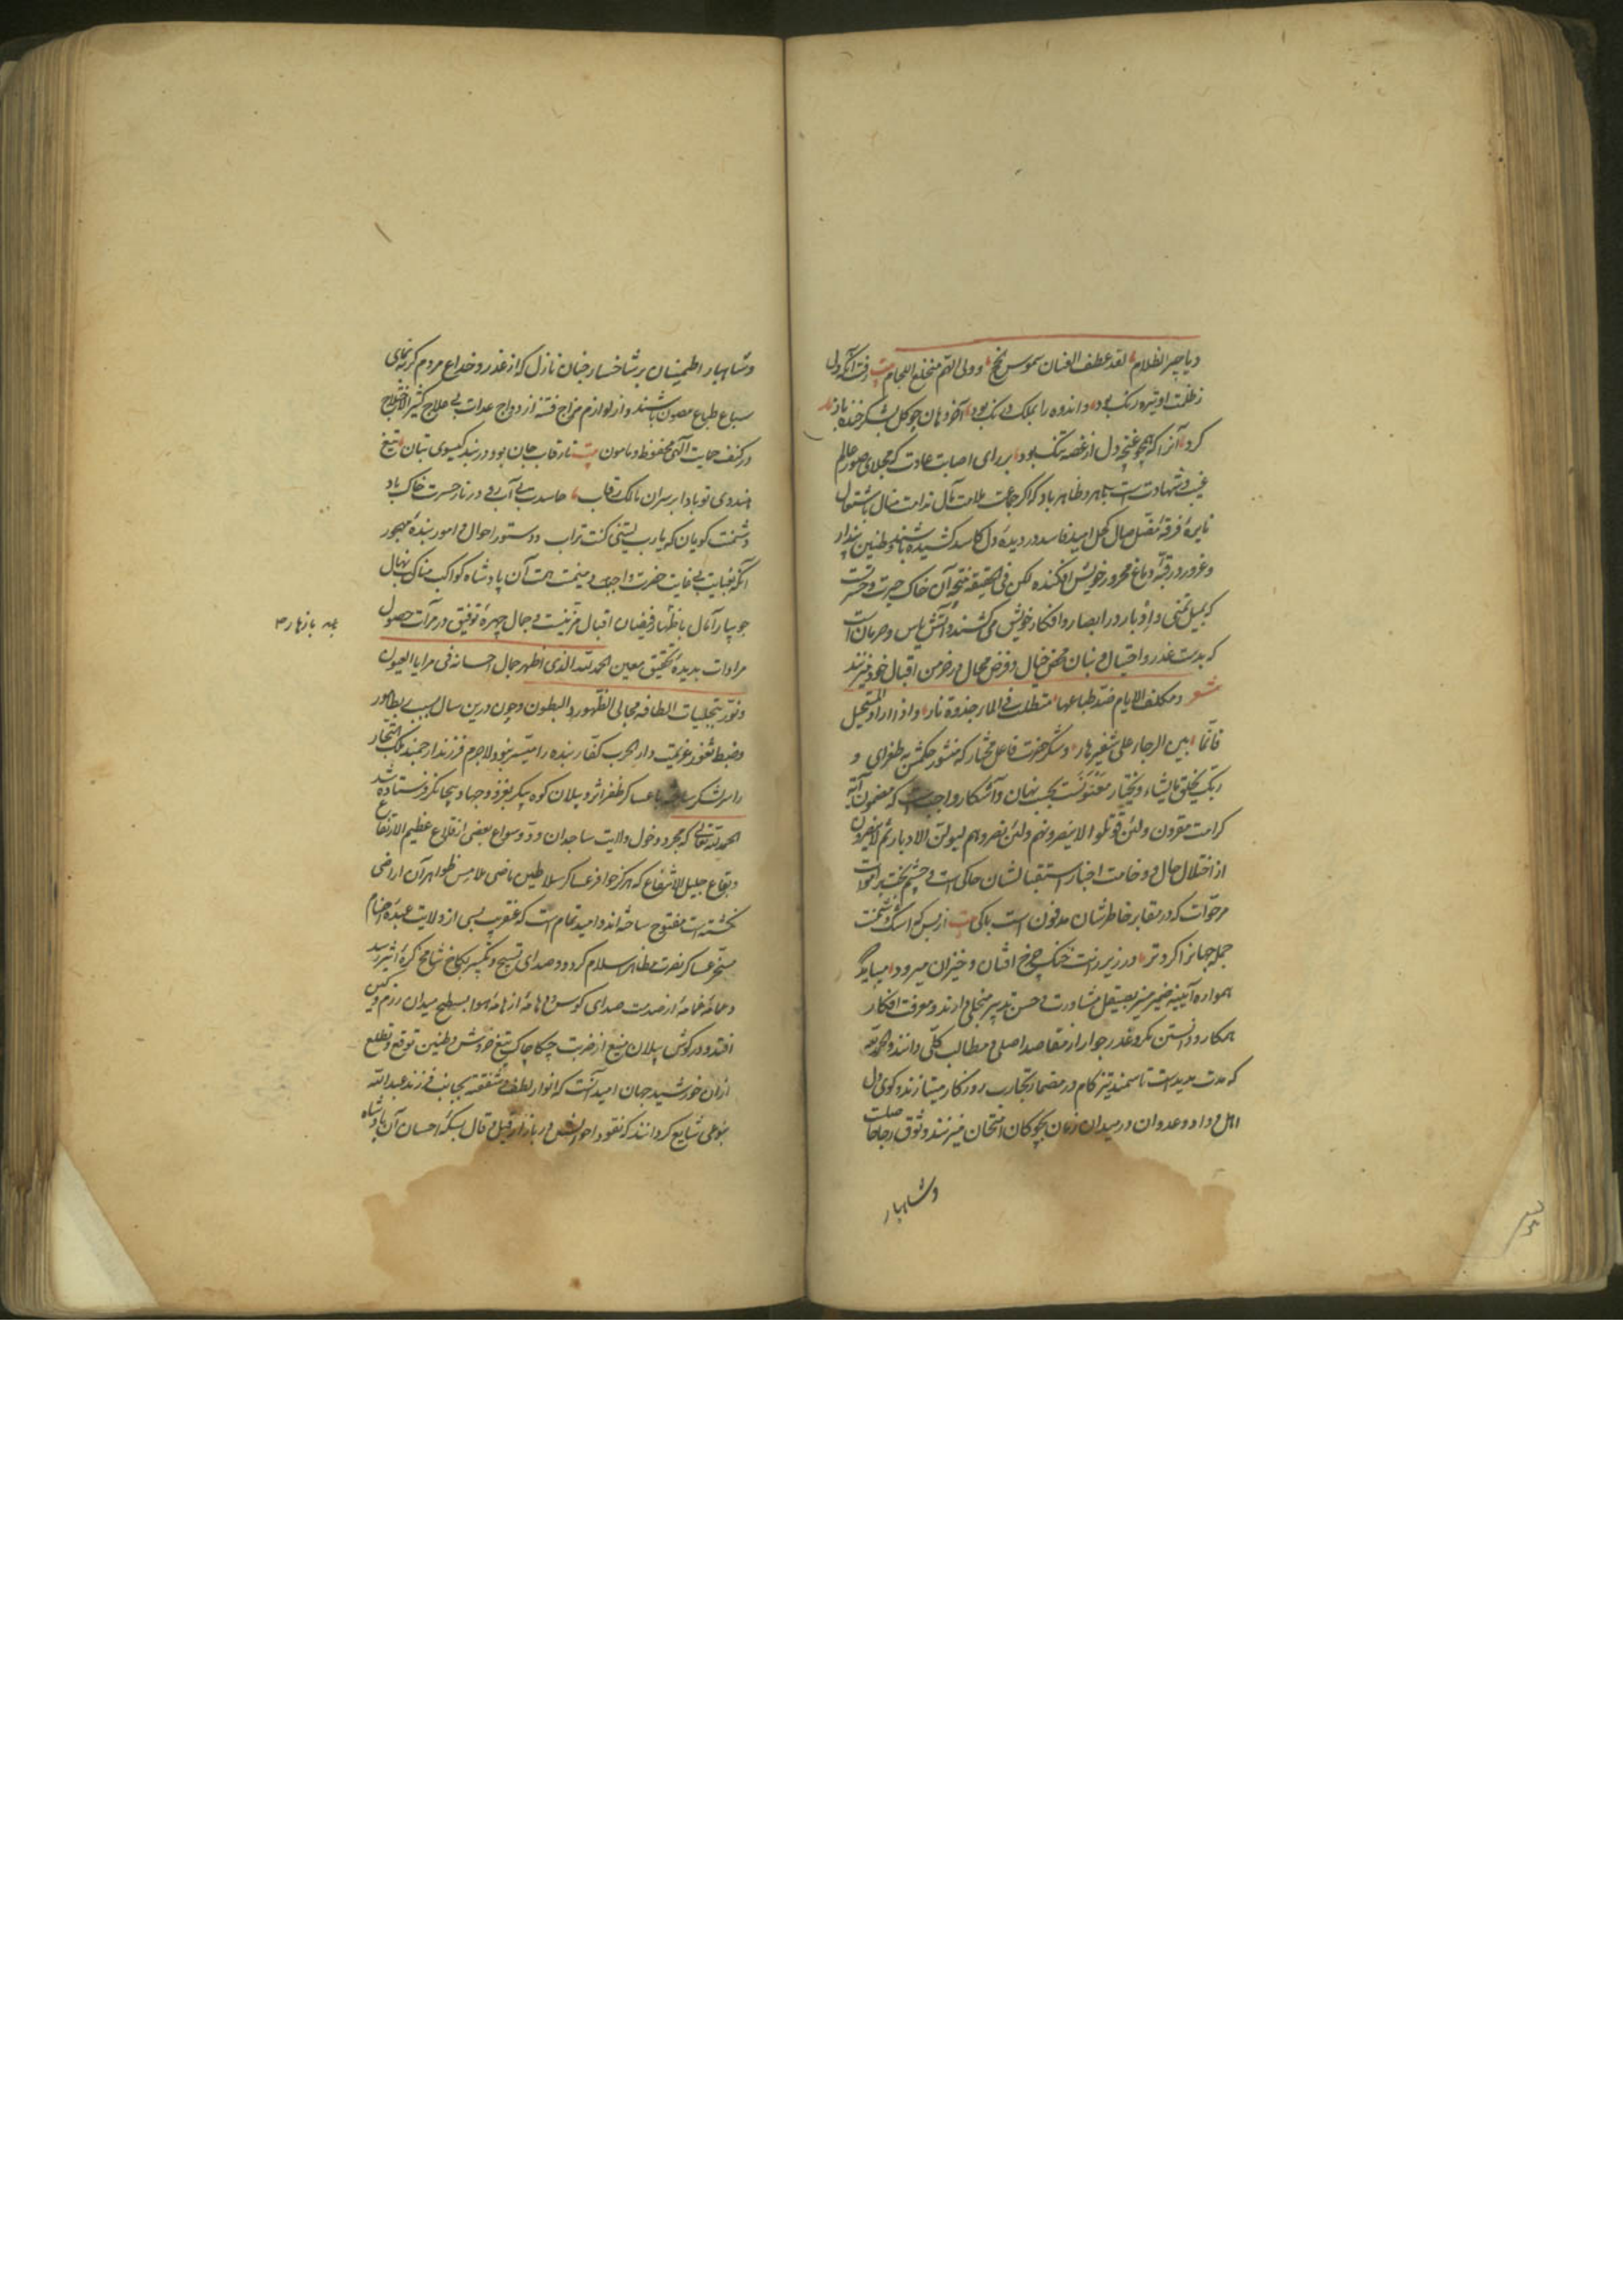 دیاجیر الظلام لقد عطف الفسان شموس نجح وولی الهم منخلع اللجام بیت رفت آنکه دل
زظلمت او تیره رنک بود واندوه را بملک دل بود آخر دهان چو کل بشکر خنده باز
کرد آنرا که همچو غنچه دل از غصه تنک بود بر رای اصابت عادت که مجلای صور عالم
غیب و شهادت است باهر و ظاهر باد که اکر جماعت ملامت مآل ندامت منال باشتعال
نایره فرقه کحل امید فاسد در دیده دل کاسد کشیده باشند وطنین پندار
وغرور در قبه دماغ محرور خویش افکنده لکن فی الحقیقه نتیجه آن خاک حیرت وحسرت
که بمیل تمنی وادبار در ابصار وافکار خویش می کشند وآتش یاس وحرمان است
که بدست غدر واحتیال و بنان محض خیال وفرض محال در خرمن اقبال خود میزنند
شعر ومکلف الایام ضد طباعها متطلب فی الماء جذوة نار واذا اراد المستحیل
فانما یبنی الرجاء علی شفیر هار وشکر حضرت فاعل مختار که منشور حکمتش بطغرای و
ربک یخلق مایشاء ویختار معنونست بحسب نهان وآشکار واجب است که مضمون آیه
کرامت مقرون ولئن قوتلوا لا ینصرونهم ولئن نصروهم لیولن الادبار ثم لا ینصرون
از اختلال حال و وخامت اخبار استقبالشان حاکی است و چشم بخت بر اموات
مرجوات که در مقابر خاطرشان مدفون است باکی بیت از بس که اشک دشمنت
جمله جهانرا کرد تر در زیر رانت خنک چرخ افتان وخیزان میرود میباید که
همواره آیینه ضمیر منیر بصیقل مشاورت و حسن تدبیر منجلی دارند ومعرفت افکار
همکار ودانستن مکر وغدر جوار از مقاصد اصلی و مطالب کلی دانند والحمد لله
که مدت مدید است تا سمند تیز کام در مضمار تجارب روزکار میتازند وکوی دل
اهل وداد وعدوان در میدان زمان بچوکان امتحان میزنند وثوق رجا حاصلست
وشاهباز
وشاهباز اطمینان بر شاخسار جنان نازل که از غدر وخداع مردم کربه نمای
سباع طباع مصون باشند واز لوازم مزاج فتنه ازدواج عدات بی علاج کثیر الاختلاج
در کنف حمایت آلهی محفوظ ومامون بیت تا رقاب جان بود در بند کیسوی بتان تیغ
هندوی تو بادا بر سران مالک رقاب حاسدت بی آب روی در نار حسرت خاک باد
دشمنت کویان که یارب لیتنی کنت تراب دستور احوال و امور بنده مهجور
آنکه بعنایت بی غایت حضرت واجب و میمنت همت آن پادشاه کواکب مناکب نهال
جویبار آمال بازهار فیضان اقبال مزینست و جمال چهره توفیق در مرآت حصول
به بازهار م
مرادات بدیده تحقیق معین الحمد لله الذی اظهر جمال احسانه فی مرایا العیون
ونور بتجلیات الطافه مجالی الظهور والبطون وچون درین سال بسبب بعضی امور
وضبط ثغور عزیمت دار الحرب کفار بنده را میسر نبود لاجرم فرزند ارجمند ملک التجار
را سر لشکر ساخته با عساکر ظفر اثر وپیلان کوه پیکر بغزو وجهاد بیجانکر فرستاده شد
الحمد لله تعالی که بمجرد دخول ولایت ساجدان ود وسواع بعضی از قلاع عظیم الارتفاع
وبقاع جلیل الاشفاع که هرکز حوافر عساکر سلاطین ماضی ملامس ظواهر آن اراضی
نکشته است مفتوح ساخته اند وامید تمام است که عنقریب بسی از ولایت عبده اصنام
مسخر عساکر نصرت مظاهر اسلام کردد وصدای تسبیح وتکبیر بکاخ شامخ کره اثیر رسد
وعامه غمامه از صدمت صدای کوس از هامه هوا بسطح میدان رزم وکین
افتد ودر کوش پیلان منیع از ضربت چکاچاک تیغ خروش وطنین توقع وتطلع
ازان خورشید جهان امید آنست که انوار لطف و شفقت بجانب فرزند عبد الله
بنوعی شایع کردانند که نقود احوالش در بازار قیل و قال بسکه احسان آن پادشاه